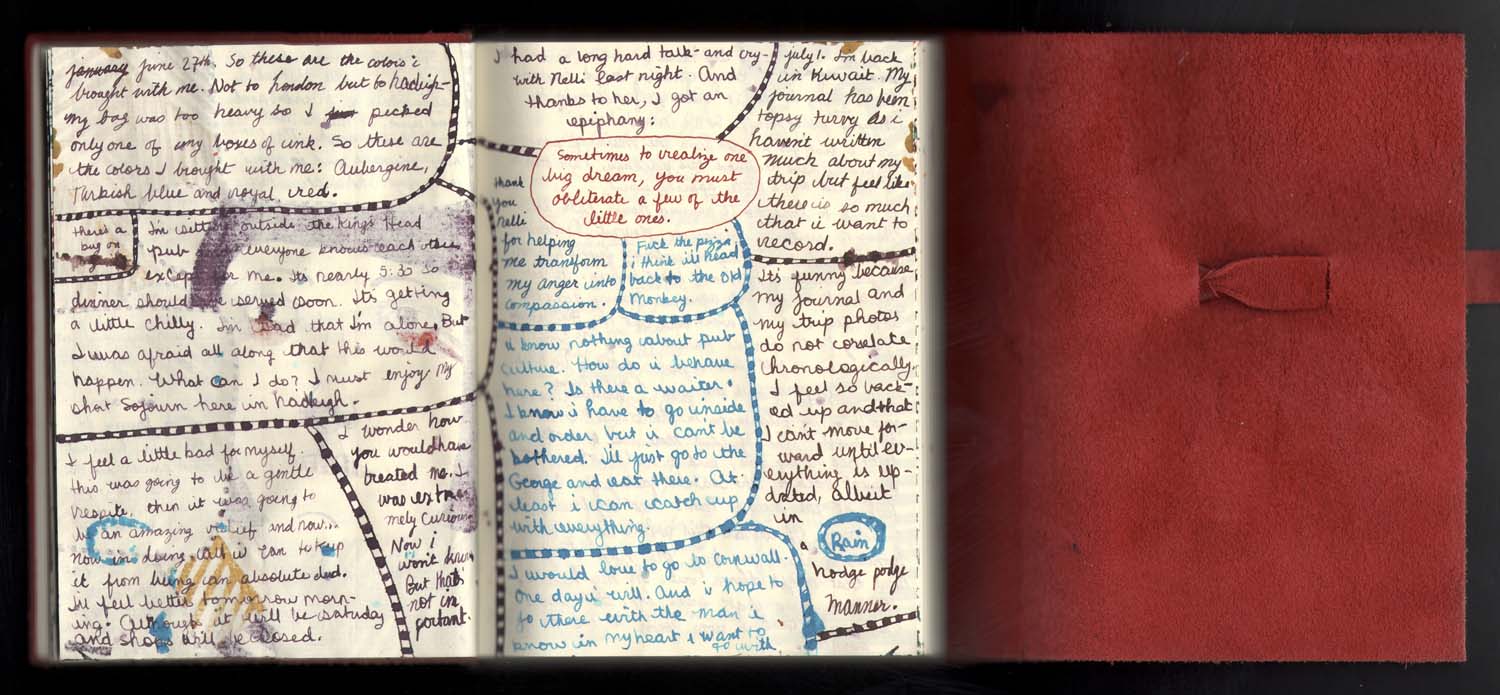 january june 27th. So these are the colors i
brought with me. Not to London but to hadleigh-
my bag was too heavy so I just packed
only one of my boxes of ink. So these are
the colors I brought with me: Aubergine,
Turkish blue and royal red.
there's a
bug on
I'm sitting outside the Kings Head
pub and everyone knows each other
except for me. Its nearly 5:30 so
dinner should be served soon. It's getting
a little chilly. I'm sad that I'm alone, But
I was afraid all along that this would
happen. What can I do? I must enjoy my
short sojourn here in hadleigh.
I feel a little bad for myself.
this was going to be a gentle
respite, then it was going to
be an amazing relief and now...
now im doing all i can to keep
it from being an absolute dud.
Ill feel better tomorrow morn-
ing. Although it will be saturday
and shops will be closed.
I wonder how
you would have
treated me. I
was extre
mely curious.
Now i
won't know
But that's
not im
portant.
I had a long hard talk- and cry-
with Nelli last night. And
thanks to her, I got an
epiphany:
Sometimes to realize one
big dream, you must
obliterate a few of the
little ones.
thank
you
Nelli
for helping
me transform
my anger into
compassion.
Fuck the pizza,
i think ill head
back to the Old
Monkey.
i know nothing about pub
culture. How do i behave
here? Is there a waiter.
I know i have to go inside
and order but i can't be
bothered. I'll just go to the
George and eat there. At
least i can catch up
with everything.
I would love to go to Cornwall.
One day i will. And i hope to
go there with the man i
know in my heart i want to
go with
july 1. I'm back
in Kuwait. My
journal has been
topsy turvy as i
haven't written
much about my
trip but feel like
there is so much
that i want to
record.
It's funny because
my journal and
my trip photos
do not correlate
chronologically.
I feel so back-
ed up and that
I can't move for-
ward until ev-
erything is up-
dated, albeit
in
a
Rain
hodge podge
manner.